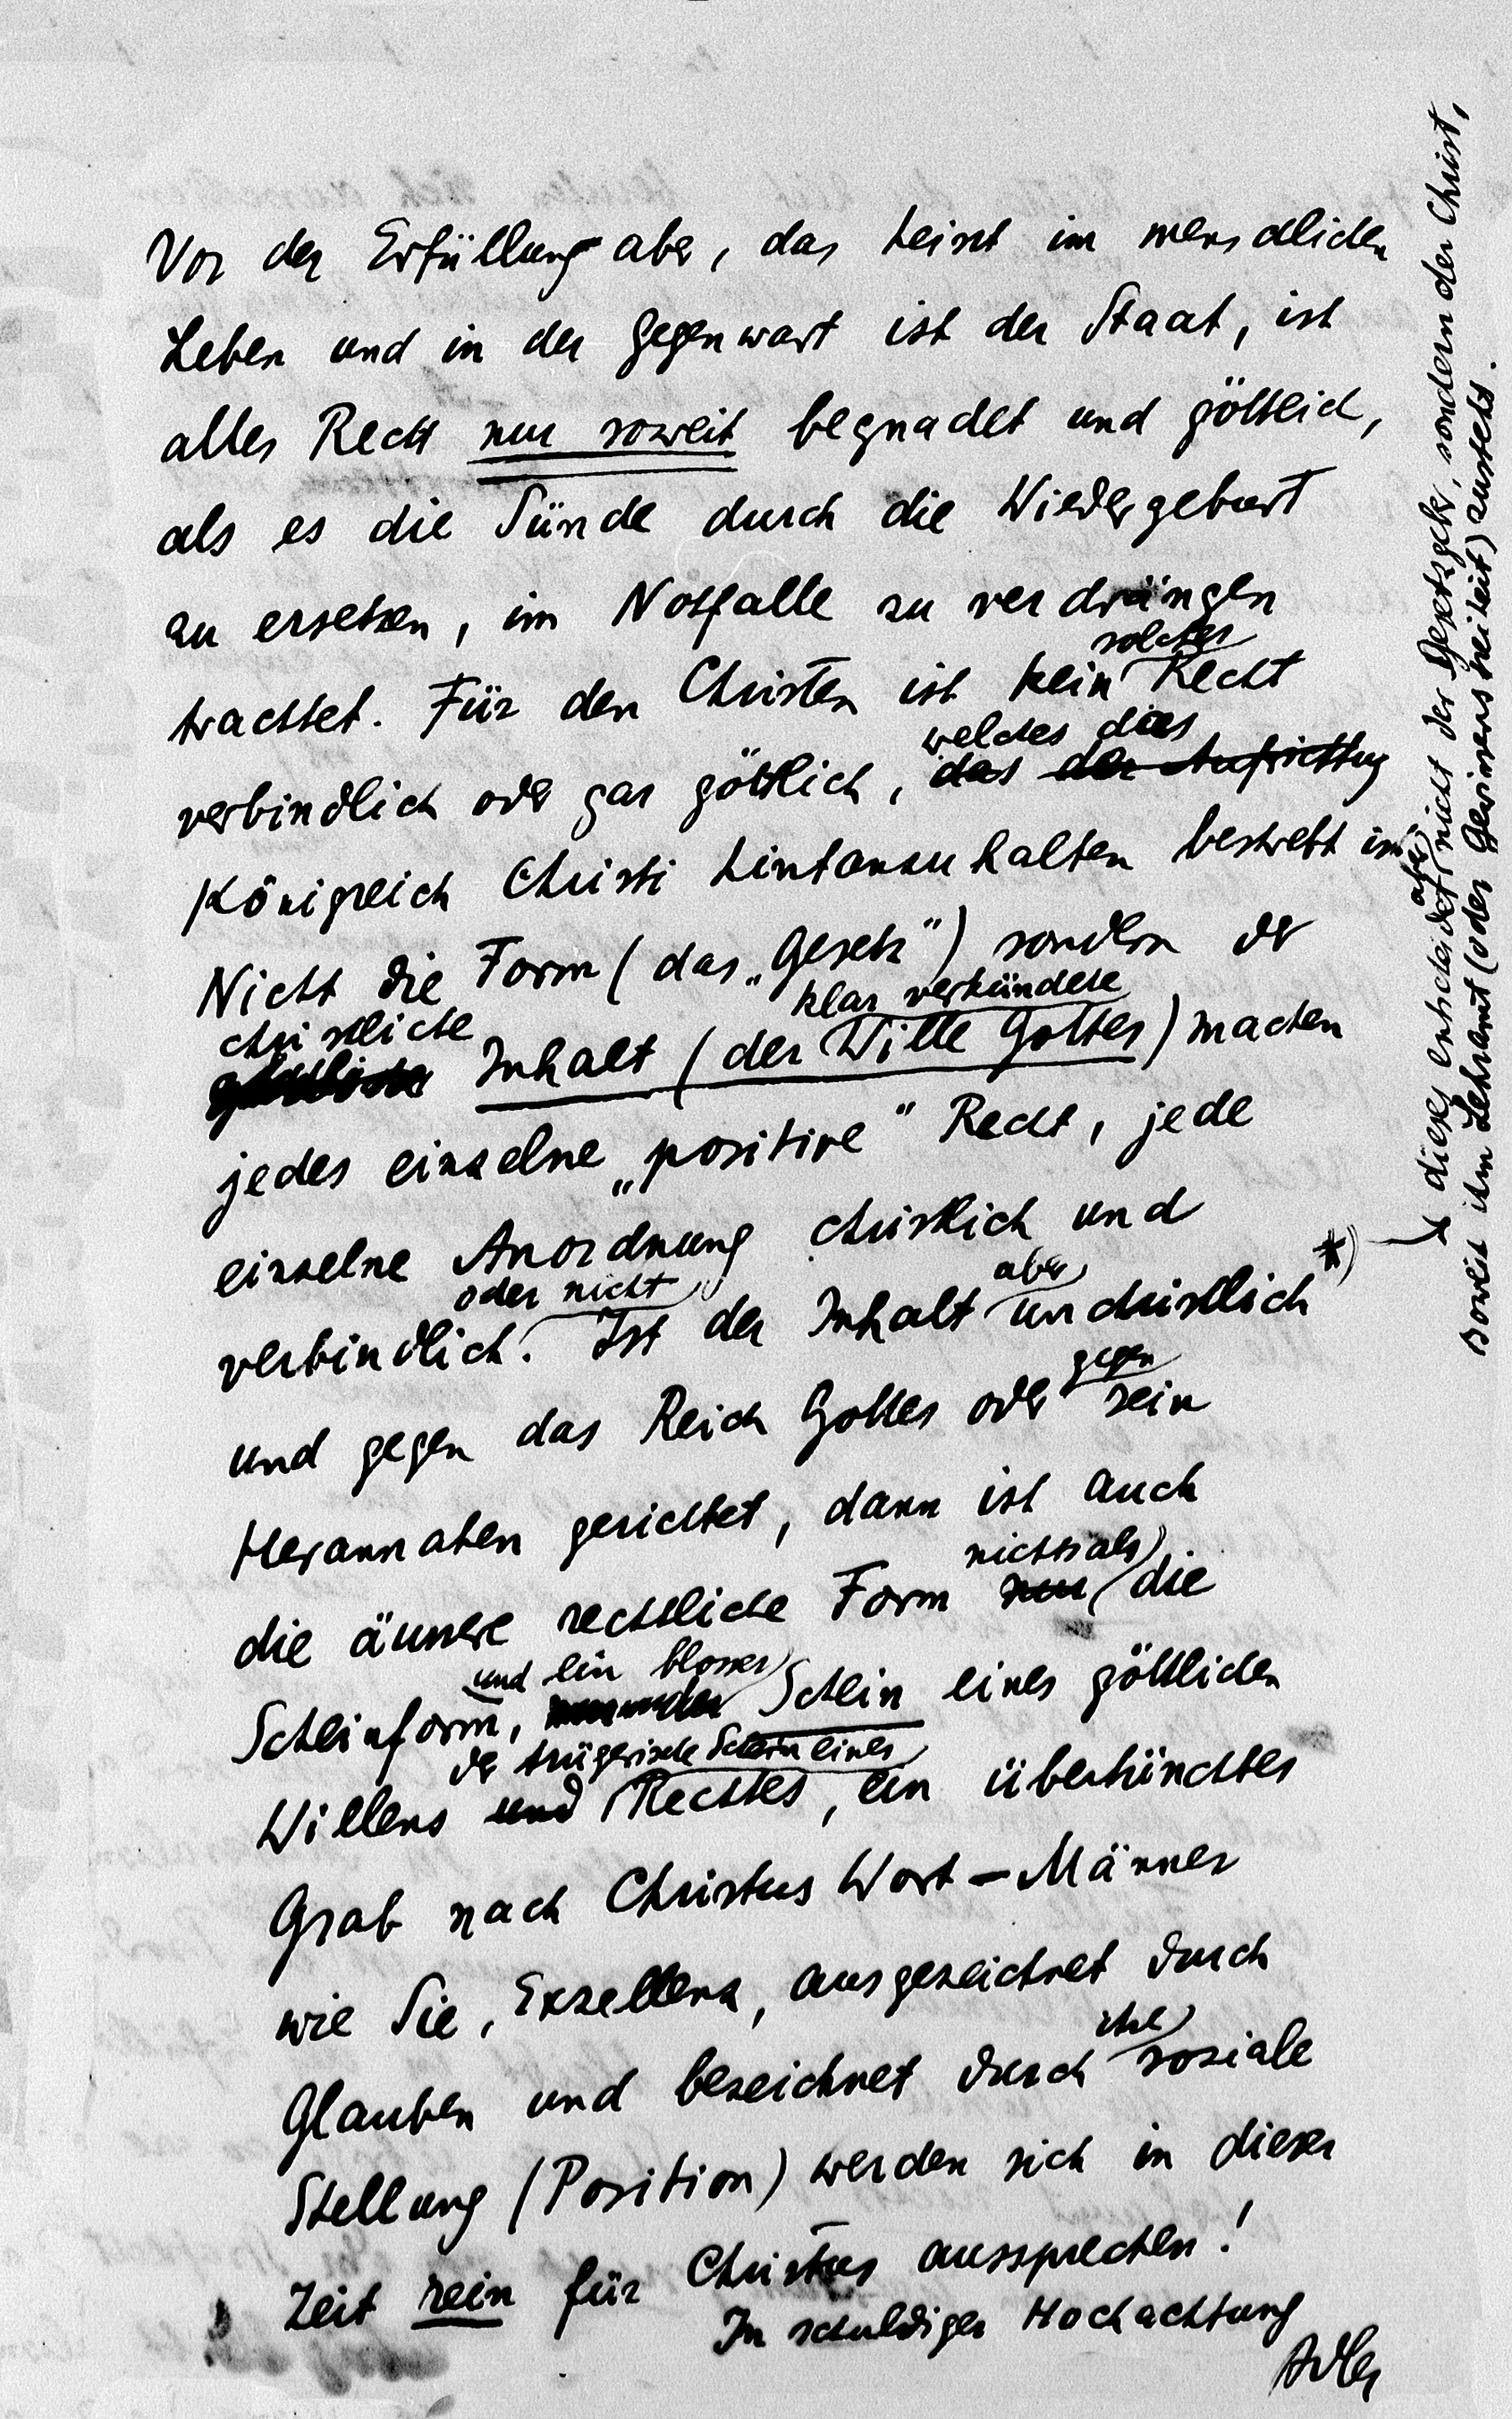 Vor der Erfüllung aber, das heisst im menschlichen
Leben und in der Gegenwart ist der Staat, ist
alles Recht nur soweit begnadet und göttlich,
als es die Sünde durch die Wiedergeburt
zu ersetzen, im Notfalle zu verdrängen
solches
trachtet. Für den Christen ist kein Recht
welches das
verbindlich oder gar göttlich, das der Aufrichtung
Königreich Christi hintanzuhalten bestrebt ist.
Nicht die Form (das „Gesetz") sondern der
klar verkündete
christliche
Inhalt (der Wille Gottes) machen
jedes einzelne „positive" Recht, jede
einzelne Anordnung christlich und
oder nicht aber
verbindlich. Ist der Inhalt unchristlich *)
gegen
und gegen das Reich Gottes oder sein
Herannahen gerichtet, dann ist auch
nichts als
die äussere rechtliche Form nur die
und ein blosser
Scheinform, Schein eines göttlichen
der trügerische Schein eines
Willens und Rechtes, ein übertünchtes
Grab nach Christus Wort – Männer
wie Sie, Exzellenz, ausgezeichnet durch
ihre
Glauben und bezeichnet durch soziale
Stellung (Position) werden sich in dieser
Zeit rein für Christus aussprechen!
In schuldiger Hochachtung
Adler
aber
dieses entscheidet nicht der Gesetzgeber, sondern der Christ,
soweit ihm Lehramt (oder Gewissensfreiheit) zusteht.